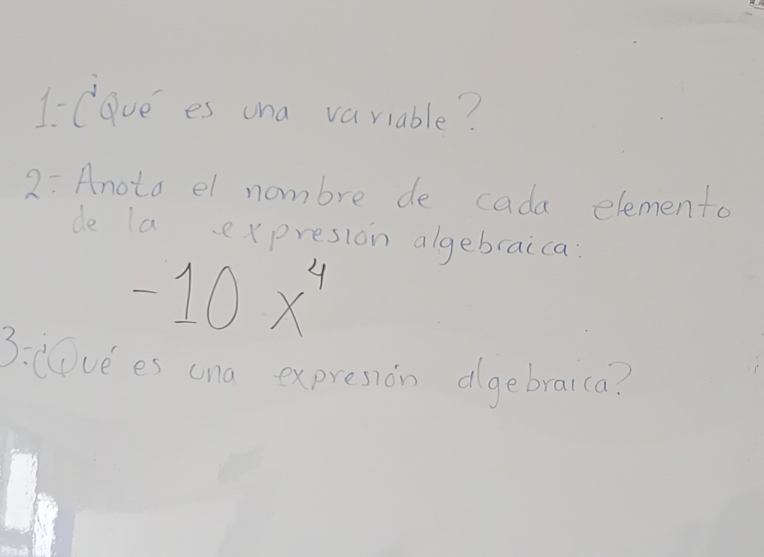 1.- ¿Qué es una variable?
2.- Anota el nombre de cada elemento
de la expresión algebraica:
-10 x⁴
3.- ¿Qué es una expresión algebraica?